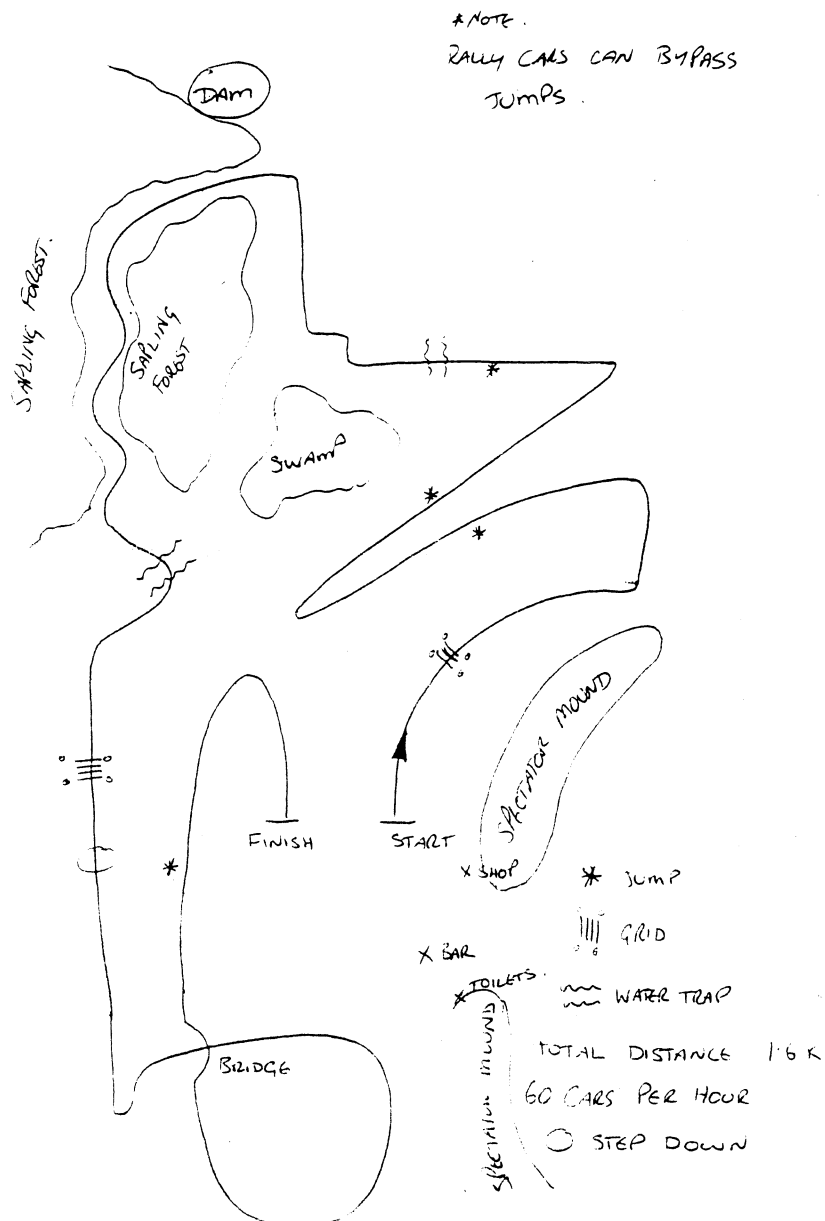 *NOTE.
RALLY CARS CAN BYPASS
JUMPS.
DAM
SAPLING FOREST.
SAPLING
FOREST
SWAMP
SPECTATOR MOUND
FINISH
START
X SHOP
* JUMP
GRID
X BAR
TOILETS.
WATER TRAP
SPECTATOR MOUND
BRIDGE
TOTAL DISTANCE 1.6 K
60 CARS PER HOUR
STEP DOWN